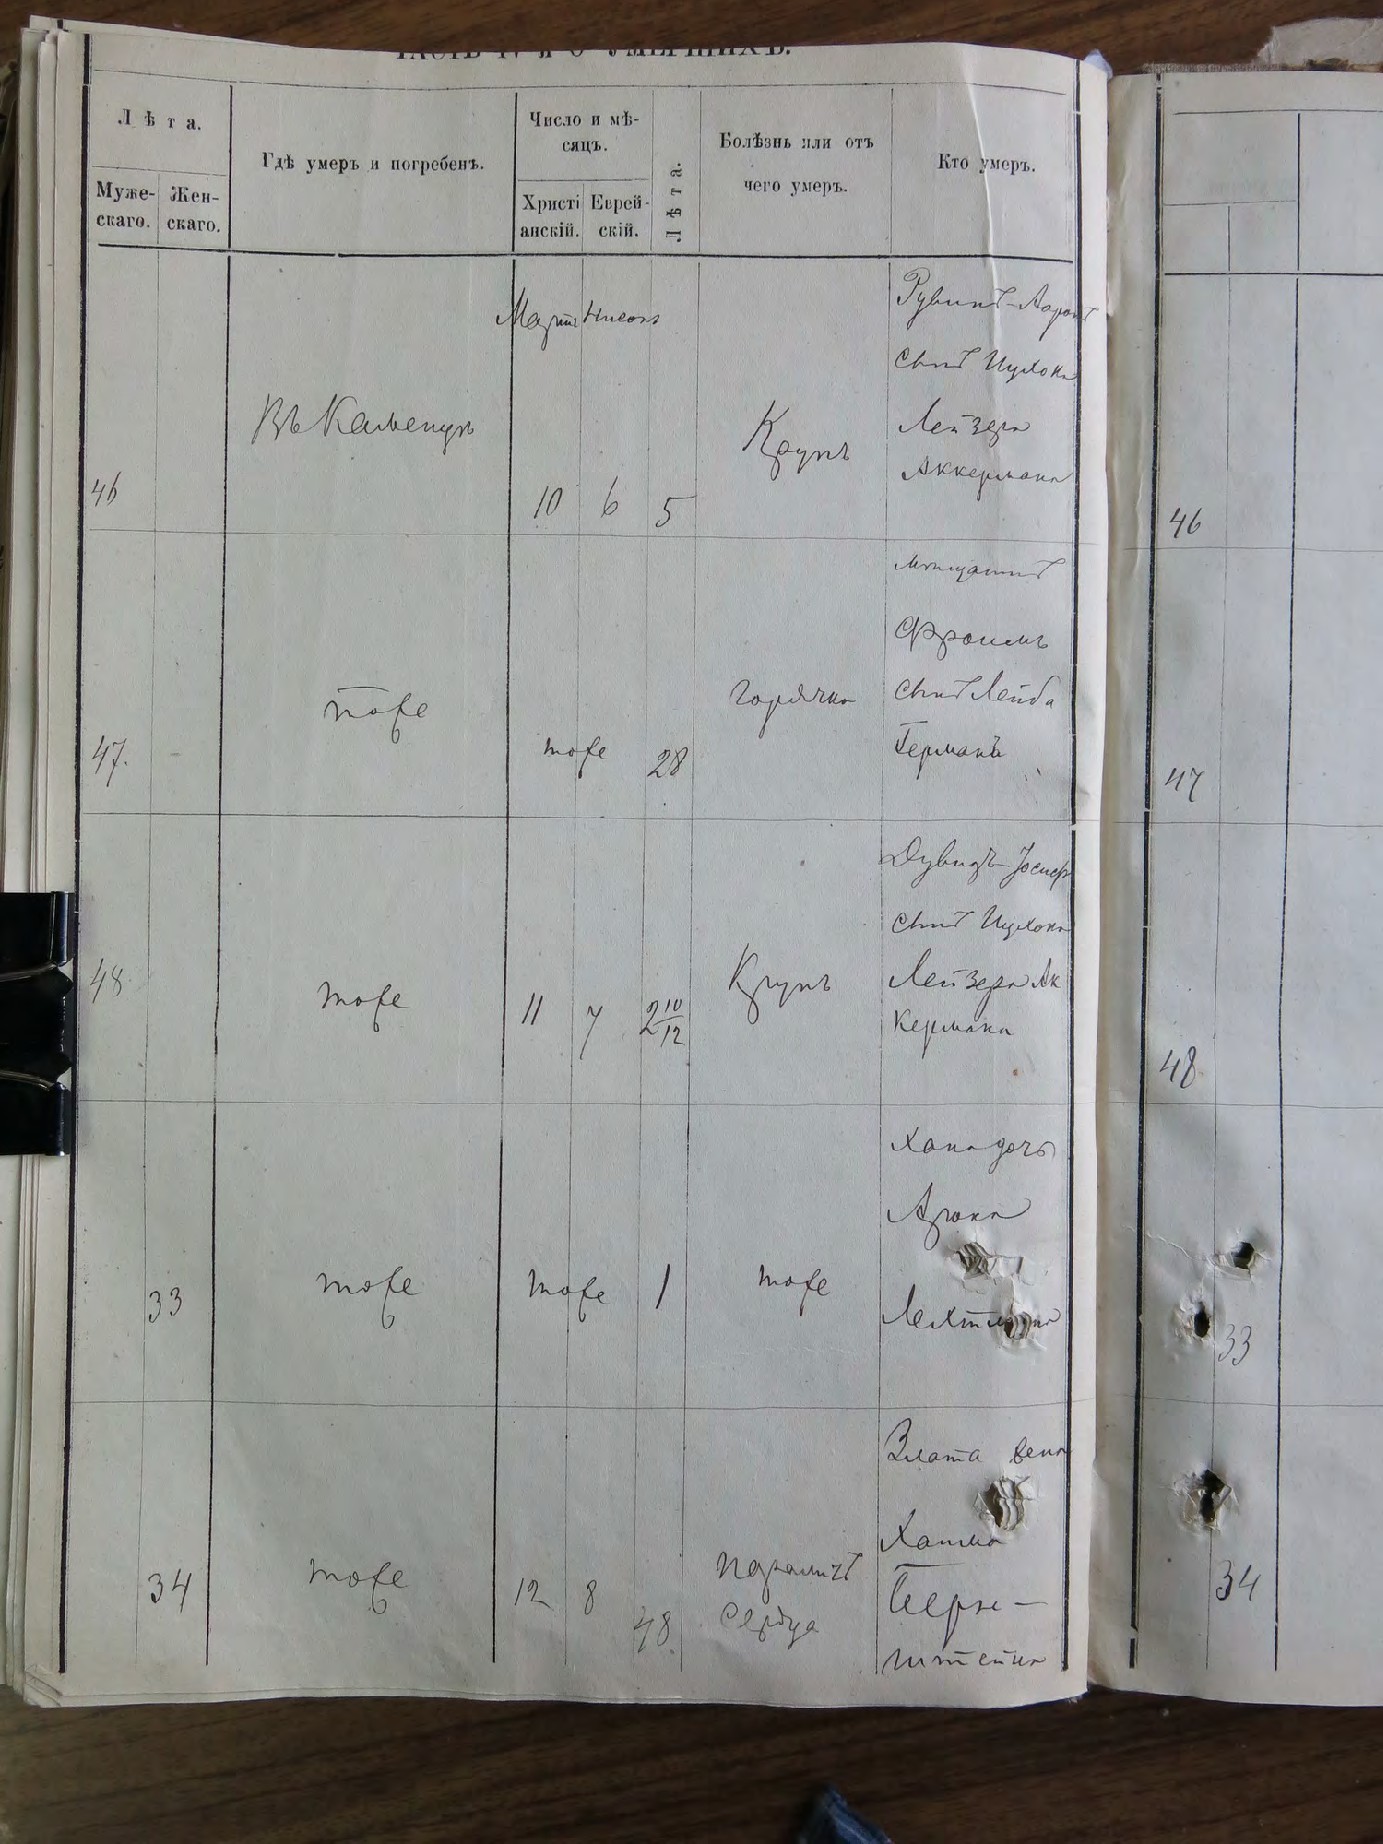 ЧАСТЬ IV-я О УМЕРШИХЪ.
Лѣта.
Муже-
скаго.
Жен-
скаго.
Гдѣ умеръ и погребенъ.
Число и мѣ-
сяцъ.
Христі
анскій.
Еврей-
скій.
Лѣта.
Болѣзнь или отъ
чего умеръ.
Кто умеръ.
Мартъ Нисонъ
46
Въ Каменцѣ
10 6 5
Крупъ
Рувинъ-Аронъ
сынъ Ицхока
Лейзера
Аккермана
46
47.
тоже
тоже 28
горячка
мѣщанинъ
Фроимъ
сынъ Лейба
Германъ
47
48
тоже
11 7 2 10/12
Крупъ
Дувидъ-Іосиф
сынъ Ицхока
Лейзера Ак
кермана
48
33
тоже
тоже 1
тоже
Хана дочь
Арона
33
34
тоже
12 8 48.
параличъ
сердца
Злата жена
Хаима
Берн-
штейна
34